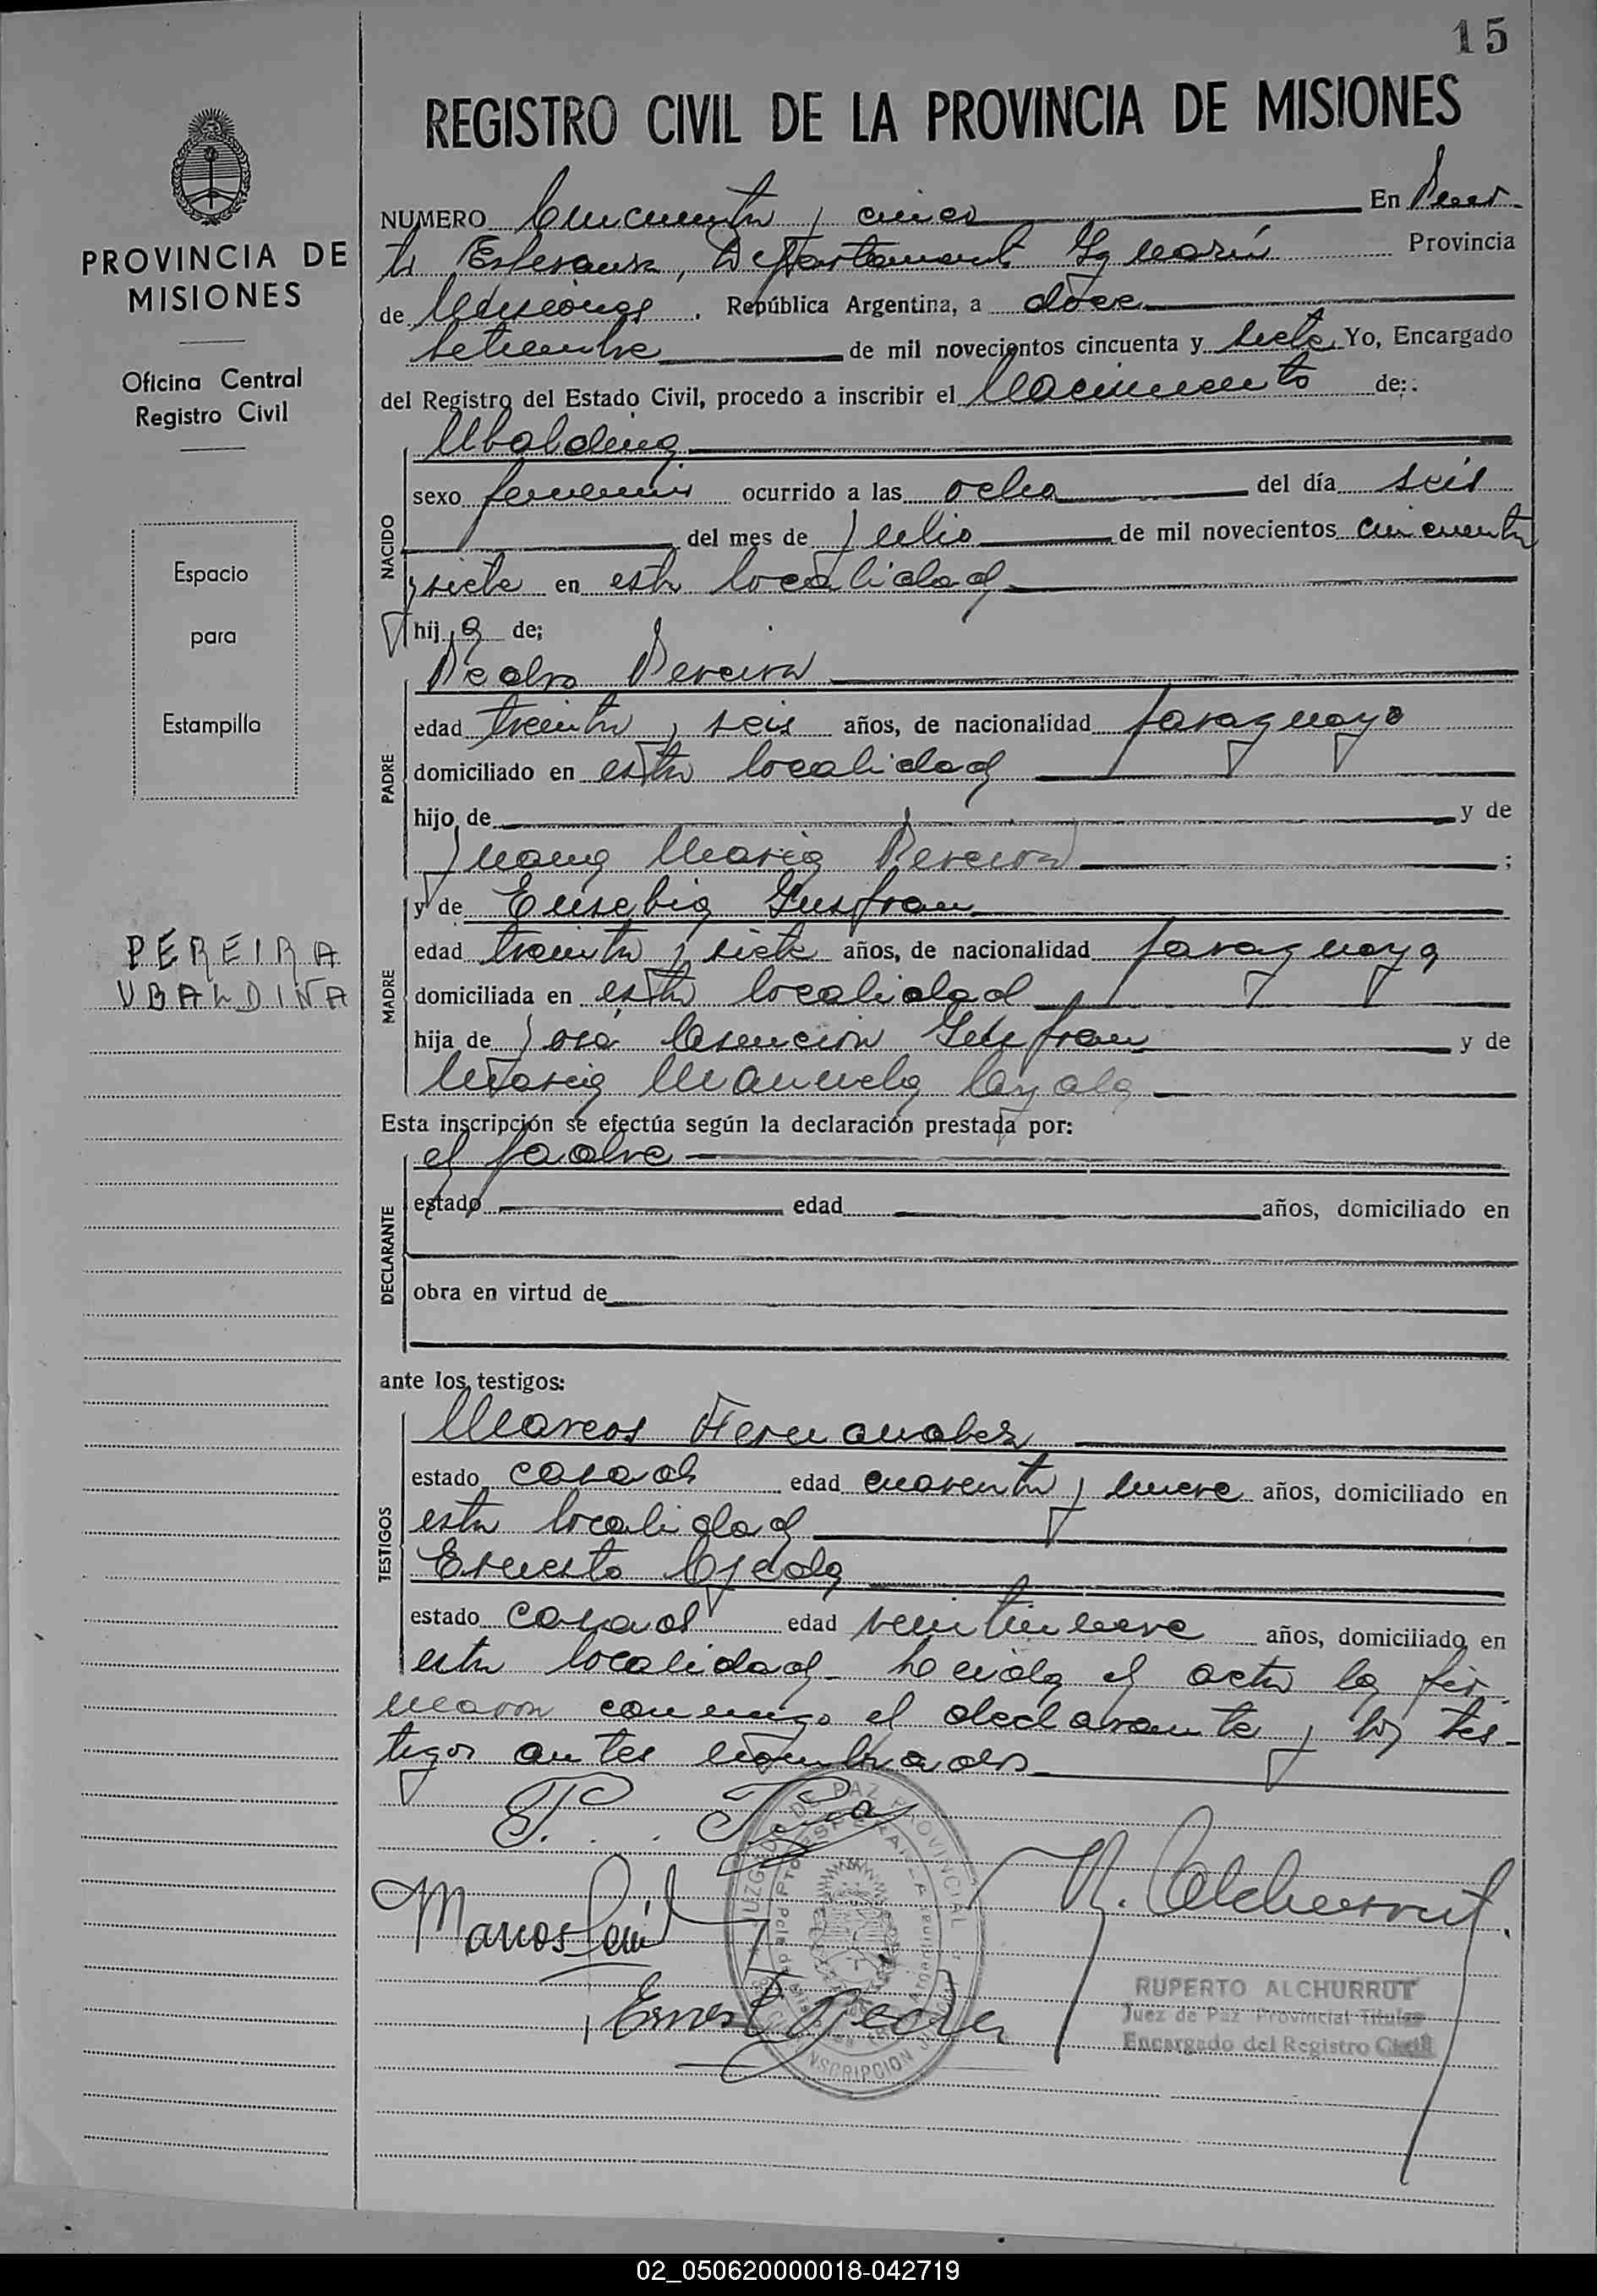 15
REGISTRO CIVIL DE LA PROVINCIA DE MISIONES
NUMERO Cincuenta y cinco En Puer-
to Esperanza, Departamento Provincia
de Misiones, República Argentina, a doce
setiembre de mil novecientos cincuenta y siete, Yo, Encargado
del Registro del Estado Civil, procedo a inscribir el Nacimiento de:
Ubaldina
NACIDO
sexo femenino ocurrido a las ocho del día seis
del mes de Julio de mil novecientos cincuenta
y siete en esta localidad
hij a de:
PADRE
Pedro Pereira
edad treinta y seis años, de nacionalidad paraguayo
domiciliado en esta localidad
hijo de y de
Juana Maria Pereira ;
MADRE
y de Eusebia Gusfran
edad treinta y siete años, de nacionalidad paraguaya
domiciliada en esta localidad
hija de José Asención Gusfran y de
Maria Manuela Ayala
Esta inscripción se efectúa según la declaración prestada por:
DECLARANTE
el padre
estado edad años, domiciliado en
obra en virtud de
ante los testigos:
TESTIGOS
Marcos Fernandez
estado casado edad cuarenta y nueve años, domiciliado en
esta localidad
Ernesto Ojeda
estado casado edad veintinueve años, domiciliado en
esta localidad- Leida el acta la fir-
maron conmigo el declarante y los tes-
tigos antes nombrados
JUZGADO DE PAZ PROVINCIAL
ESPERANZA
INSCRIPCION
R. Alchurrut.
Marcos
Ernesto Ojeda
RUPERTO ALCHURRUT
Juez de Paz Provincial Titular
Encargado del Registro Civil
PROVINCIA DE
MISIONES
Oficina Central
Registro Civil
Espacio
para
Estampilla
PEREIRA
UBALDINA
02_050620000018-042719